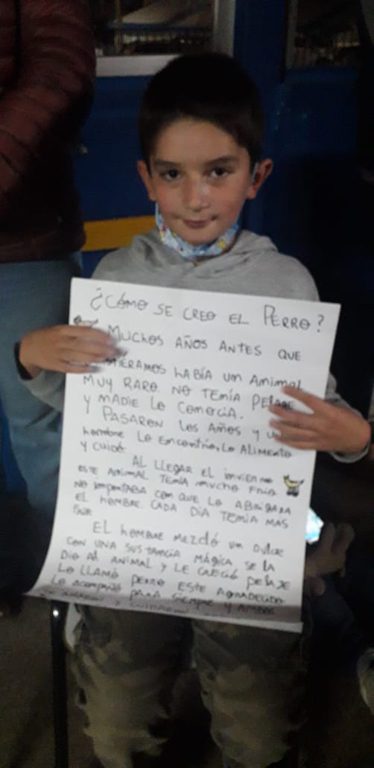 ¿CÓMO SE CREO EL PERRO?
MUCHOS AÑOS ANTES QUE
HABÍA UN ANIMAL
MUY RARO NO TEMÍA PELAJE
Y MADIE LO COMOCÍA.
PASAROM LOS AÑOS Y UN
HOMBRE LO EMCOMTRO, LO ALIMEMTO
Y CUIDÓ.
AL LLEGAR EL IMVIERMO
ESTE AMIMAL TEMÍA MUCHO FRÍO
MO IMPORTABA COM QUE LO ABRIGARA
EL HOMBRE CADA DÍA TEMÍA MAS
EL HOMBRE MEZCLÓ UM DULCE
COM UMA SUSTAMCIA MÁGICA, SE LA
DIO AL ANIMAL Y LE CRECIÓ PELAJE
LO LLAMÓ PERRO ESTE AGRADECIDO
LO ACOMPAÑÓ PARA SIEMPRE Y AMBOS